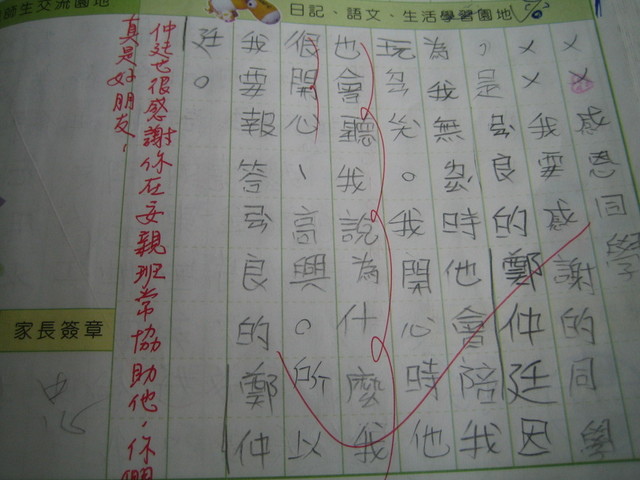 日記、語文、生活學習園地
××感恩同學
××我要感謝的同學
，是良的鄭仲廷因
為我無時他會陪我
玩笑。我開心時他
也會聽我說為什麼我
很開心、高興。所以
我要報答良的鄭仲
廷。
師生交流園地
仲廷也很感謝你在安親班常協助他，你們
真是好朋友！
家長簽章